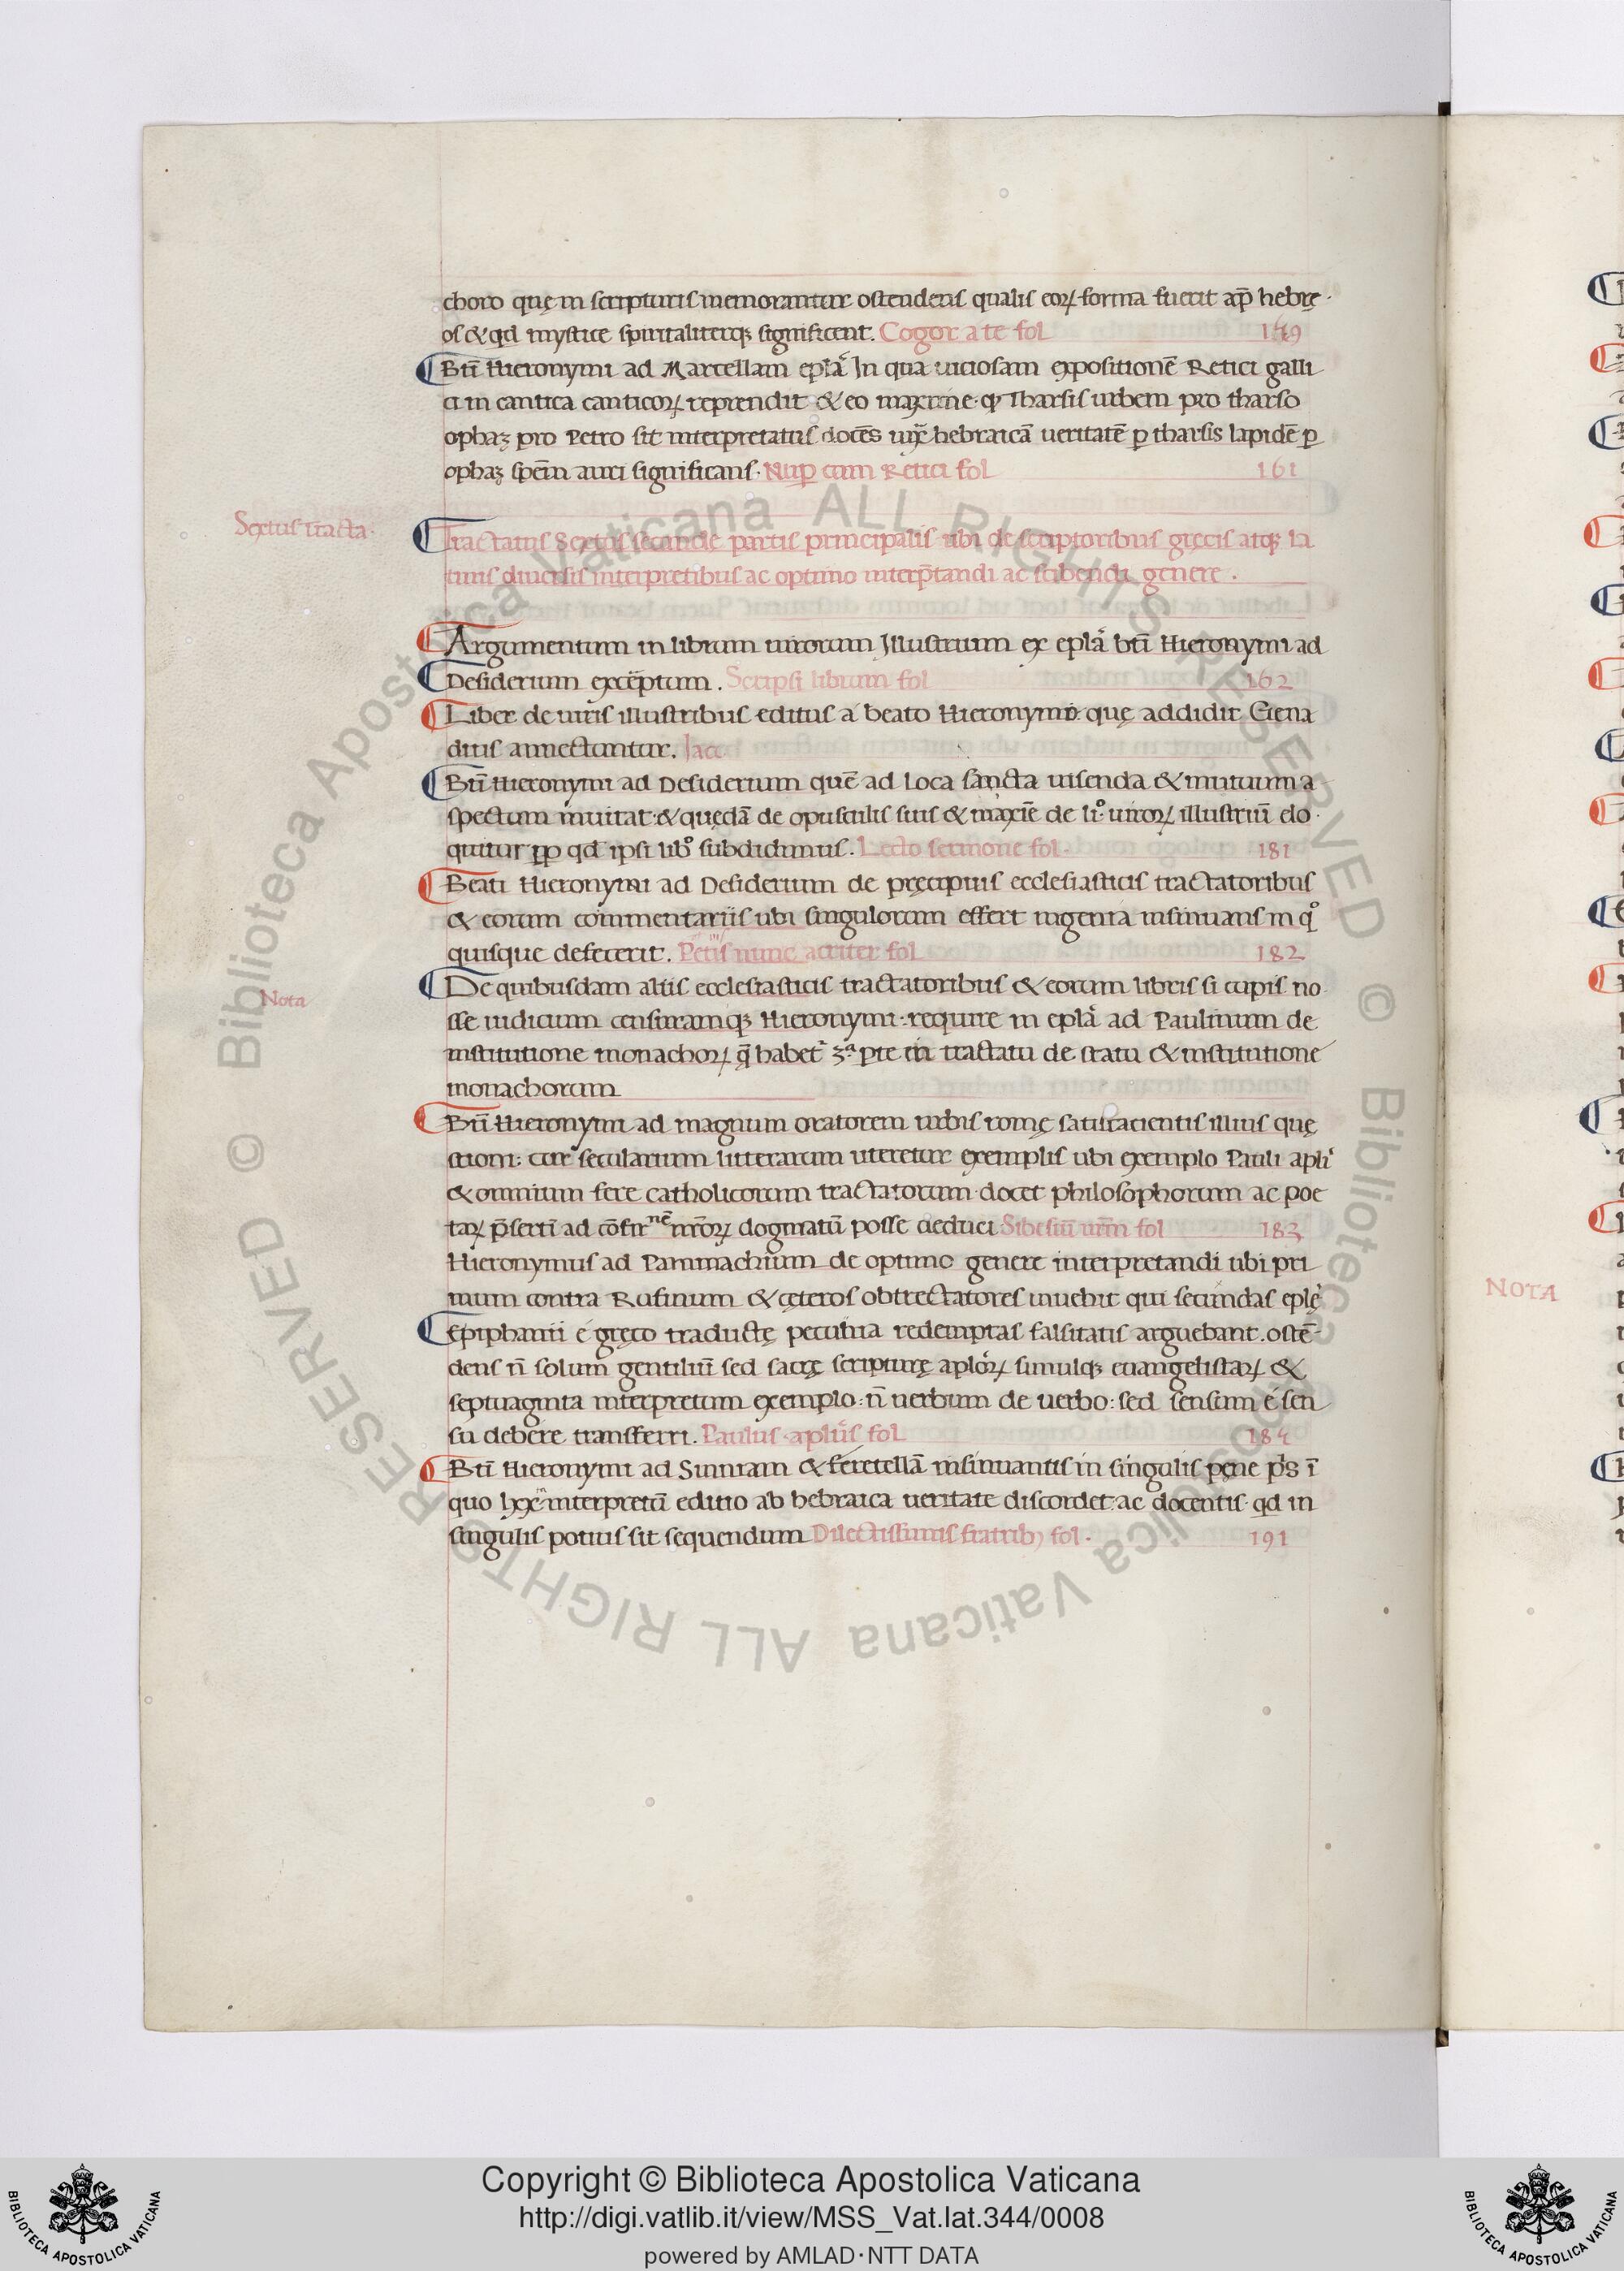 choro quę in scripturis memorantur ostendens qualis eoꝝ forma fuerit ap̄ hebrę
os & qd mystice spiritaliterqꝫ significent. Cogor a te fol 149
Bt̄i Hieronymi ad Marcellam epl̄a In qua uiciosam expositionē Retici galli
ci in cantica canticoꝝ reprendit & eo maxime ꝙ Tharsis urbem pro tharso
ophaz pro Petro sit interpretatus docēs hebraicā ueritatē ꝑ tharsis lapidē ꝑ
ophaz spēm auri significans. Nuꝑ cum Retici fol 161
Sextus tracta.
Tractatus Sextus secunde partis principalis ubi de scriptoribus gręcis atqꝫ la
tinis diuersis interpretibus ac optimo interp̄tandi ac scribendi genere.
Argumentum in librum uirorum Illustrium ex epl̄a bt̄i Hieronymi ad
Desiderium exceptum. Scripsi librum fol 162
Liber de uiris illustribus editus a beato Hieronymo que addidit Gena
dius annectuntur. Iaco
Bt̄i Hieronymi ad Desiderium quē ad Loca sancta uisenda & mutuum a
spectum inuitat & quędā de opusculis suis & maxīe de li° uiroꝝ illustriū elo
quitur ꝓp qd ipsi lib° subdidimus. Lecto sermone fol. 181
Beati Hieronymi ad Desiderium de pręcipuis ecclesiasticis tractatoribus
& eorum commentariis ubi singulorum effert ingenia insinuans in q°
quisque defecerit. Petis nunc acriter fol 182
Nota
De quibusdam aliis ecclesiasticis tractatoribus & eorum libris si cupis no
sse iudicium censuramqꝫ Hieronymi: require in epl̄a ad Paulinum de
institutione monachoꝝ q̄ habet᷑ 3ª ꝑte in tractatu de statu & institutione
monachorum
Bt̄i Hieronymi ad magnum oratorem urbis romę satisfacientis illius quę
stioni: cur secularium litterarum uteretur exemplis ubi exemplo Pauli apl̄i
& omnium fere catholicorum tractatorum docet philosophorum ac poe
taꝝ p̄serti᷑ ad cōfir nē nr̄oꝝ dogmatū posse deduci Sibesiū nr̄m fol 183
Hieronymus ad Pammachium de optimo genere interpretandi ubi pri
mum contra Rufinum & cęteros obtrectatores inuehit qui secundas eplę
Epiphanii e gręco traductę pecunia redemptas falsitatis arguebant. ostē
dens n̄ solum gentiliū sed sacrę scripturę aploꝝ simulqꝫ euangelistaꝝ &
septuaginta interpretum exemplo: n̄ uerbum de uerbo: sed sensum e sen
su debere transferri. Paulus apl̄us fol 184
Bt̄i Hieronymi ad Sunniam & feretellā insinuantis in singulis pene p̄s ī
quo lxx interpretū editio ab hebraica ueritate discordet: ac docentis qd in
singulis potius sit sequendum Dilectissimis fratribꝫ fol. 191
NOTA
Copyright © Biblioteca Apostolica Vaticana
http://digi.vatlib.it/view/MSS_Vat.lat.344/0008
powered by AMLAD·NTT DATA
BIBLIOTECA APOSTOLICA VATICANA
BIBLIOTECA APOSTOLICA VATICANA
© Biblioteca Apostolica Vaticana ALL RIGHTS RESERVED © Biblioteca Apostolica Vaticana ALL RIGHTS RESERVED